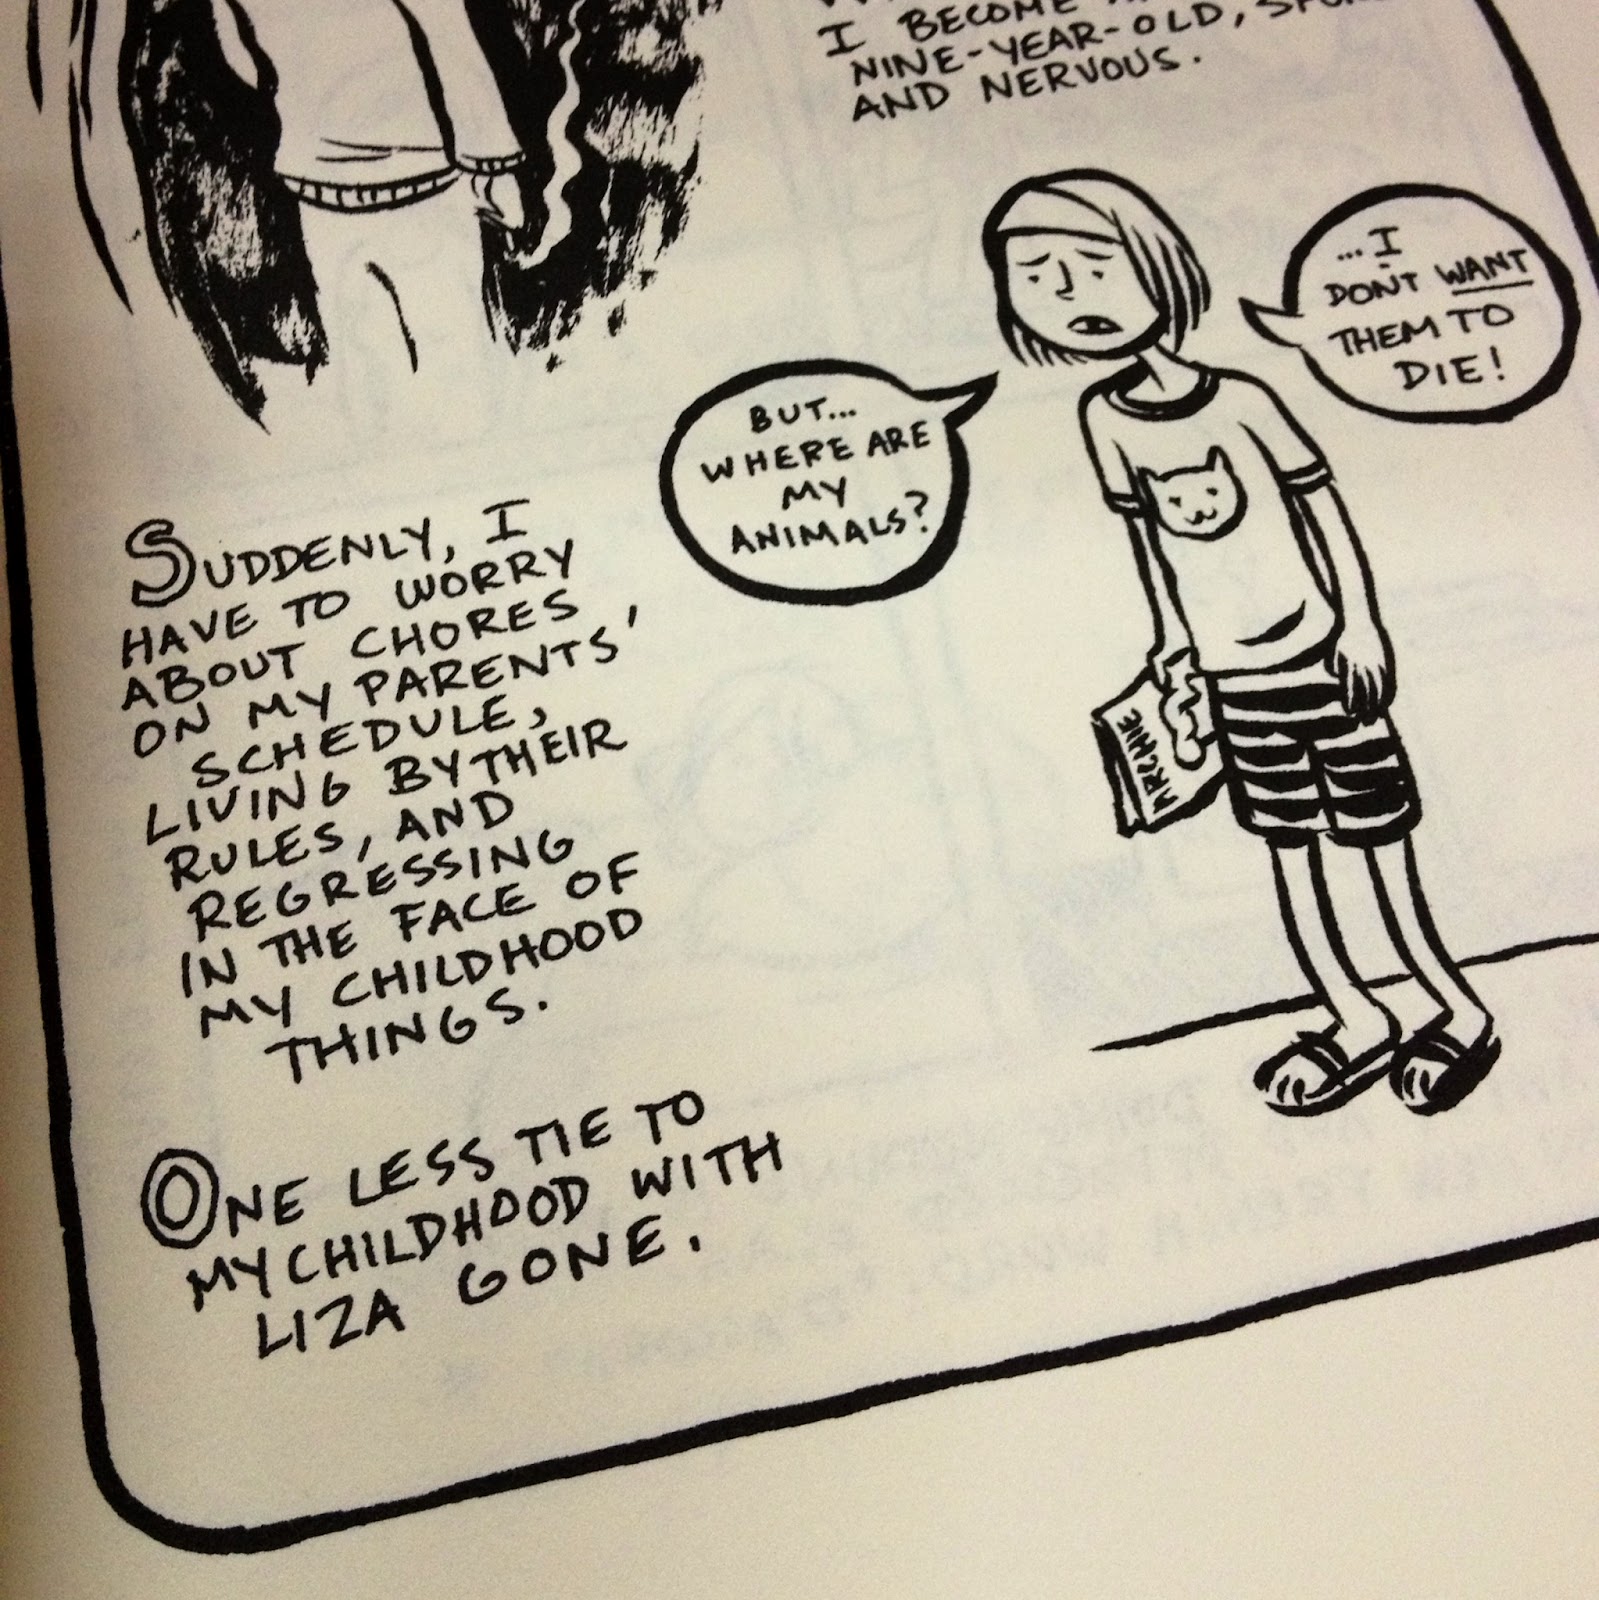 I BECOME
NINE-YEAR-OLD,
AND NERVOUS.
...I
DON'T WANT
THEM TO
DIE!
BUT...
WHERE ARE
MY
ANIMALS?
ARCHIE
SUDDENLY, I
HAVE TO WORRY
ABOUT CHORES
ON MY PARENTS'
SCHEDULE,
LIVING BY THEIR
RULES, AND
REGRESSING
IN THE FACE OF
MY CHILDHOOD
THINGS.
ONE LESS TIE TO
MY CHILDHOOD WITH
LIZA GONE.